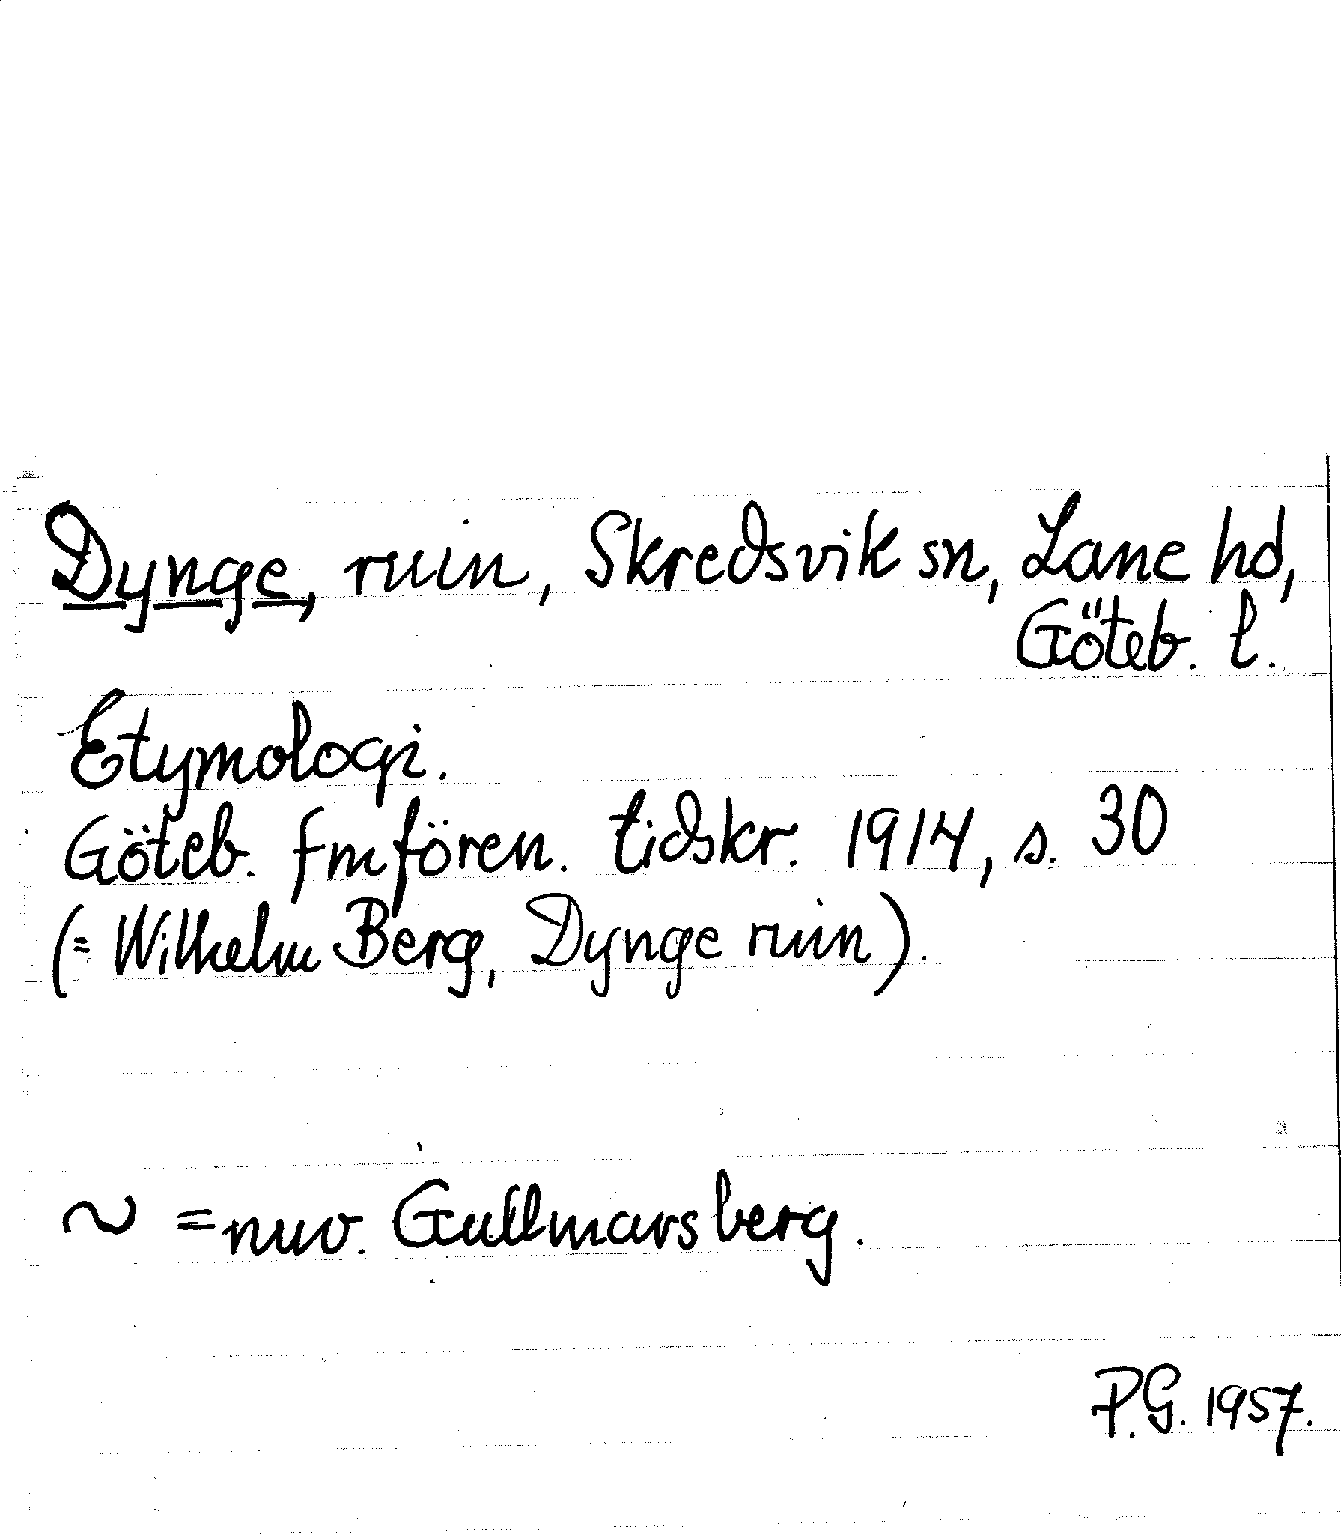 Dynge, ruin, Skredsvik sn, Lane hd,
Göteb. l.
Etymologi.
Göteb. fmfören. tidskr. 1914, s. 30
(= Wilhelm Berg, Dynge ruin).
~ = nuv. Gullmarsberg.
P.G. 1957.